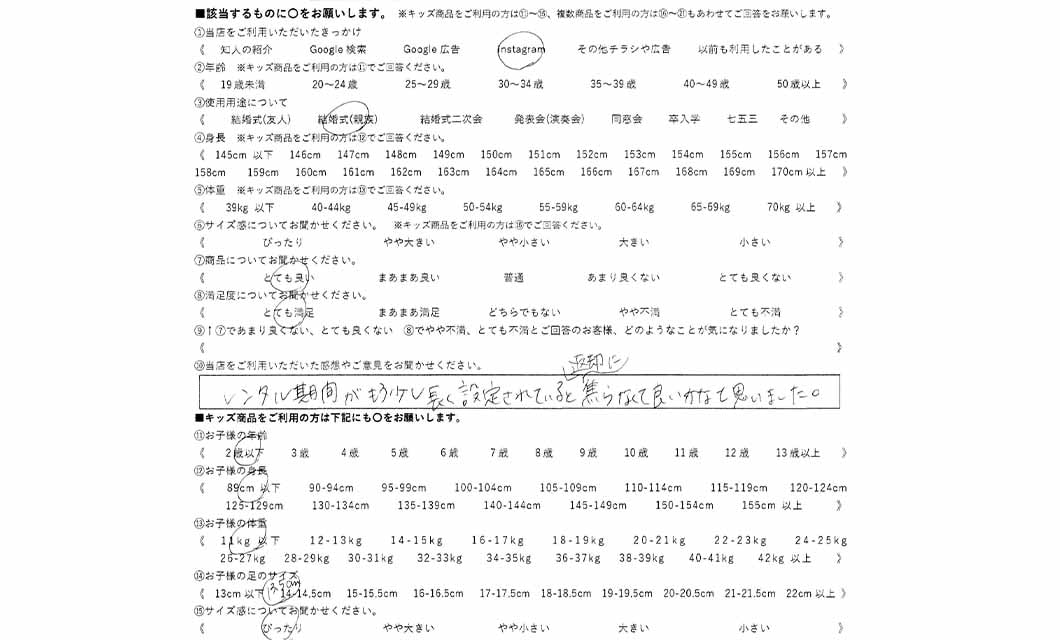 ■該当するものに〇をお願いします。 ※キッズ商品をご利用の方は⑪～⑮、複数商品をご利用の方は⑯～㉑もあわせてご回答をお願いします。
①当店をご利用いただいたきっかけ
《 知人の紹介 Google 検索 Google 広告 Instagram その他チラシや広告 以前も利用したことがある 》
②年齢 ※キッズ商品をご利用の方は⑪でご回答ください。
《 19歳未満 20～24歳 25～29歳 30～34歳 35～39歳 40～49歳 50歳以上 》
③使用用途について
《 結婚式(友人) 結婚式(親族) 結婚式二次会 発表会(演奏会) 同窓会 卒入学 七五三 その他 》
④身長 ※キッズ商品をご利用の方は⑫でご回答ください。
《 145cm 以下 146cm 147cm 148cm 149cm 150cm 151cm 152cm 153cm 154cm 155cm 156cm 157cm
158cm 159cm 160cm 161cm 162cm 163cm 164cm 165cm 166cm 167cm 168cm 169cm 170cm以上 》
⑤体重 ※キッズ商品をご利用の方は⑬でご回答ください。
《 39kg 以下 40-44kg 45-49kg 50-54kg 55-59kg 60-64kg 65-69kg 70kg 以上 》
⑥サイズ感についてお聞かせください。 ※キッズ商品をご利用の方は⑮でご回答ください。
《 ぴったり やや大きい やや小さい 大きい 小さい 》
⑦商品についてお聞かせください。
《 とても良い まあまあ良い 普通 あまり良くない とても良くない 》
⑧満足度についてお聞かせください。
《 とても満足 まあまあ満足 どちらでもない やや不満 とても不満 》
⑨↑⑦であまり良くない、とても良くない ⑧でやや不満、とても不満とご回答のお客様、どのようなことが気になりましたか？
《 》
⑩当店をご利用いただいた感想やご意見をお聞かせください。
返却に
レンタル期間がもう少し長く設定されていると焦らなくて良いかなて思いました。
■キッズ商品をご利用の方は下記にも〇をお願いします。
⑪お子様の年齢
《 2歳以下 3歳 4歳 5歳 6歳 7歳 8歳 9歳 10歳 11歳 12歳 13歳以上 》
⑫お子様の身長
《 89cm 以下 90-94cm 95-99cm 100-104cm 105-109cm 110-114cm 115-119cm 120-124cm
125-129cm 130-134cm 135-139cm 140-144cm 145-149cm 150-154cm 155cm 以上 》
⑬お子様の体重
《 11kg 以下 12-13kg 14-15kg 16-17kg 18-19kg 20-21kg 22-23kg 24-25kg
26-27kg 28-29kg 30-31kg 32-33kg 34-35kg 36-37kg 38-39kg 40-41kg 42kg 以上 》
⑭お子様の足のサイズ
《 13cm以下 13.5cm 14-14.5cm 15-15.5cm 16-16.5cm 17-17.5cm 18-18.5cm 19-19.5cm 20-20.5cm 21-21.5cm 22cm以上 》
⑮サイズ感についてお聞かせください。
《 ぴったり やや大きい やや小さい 大きい 小さい 》